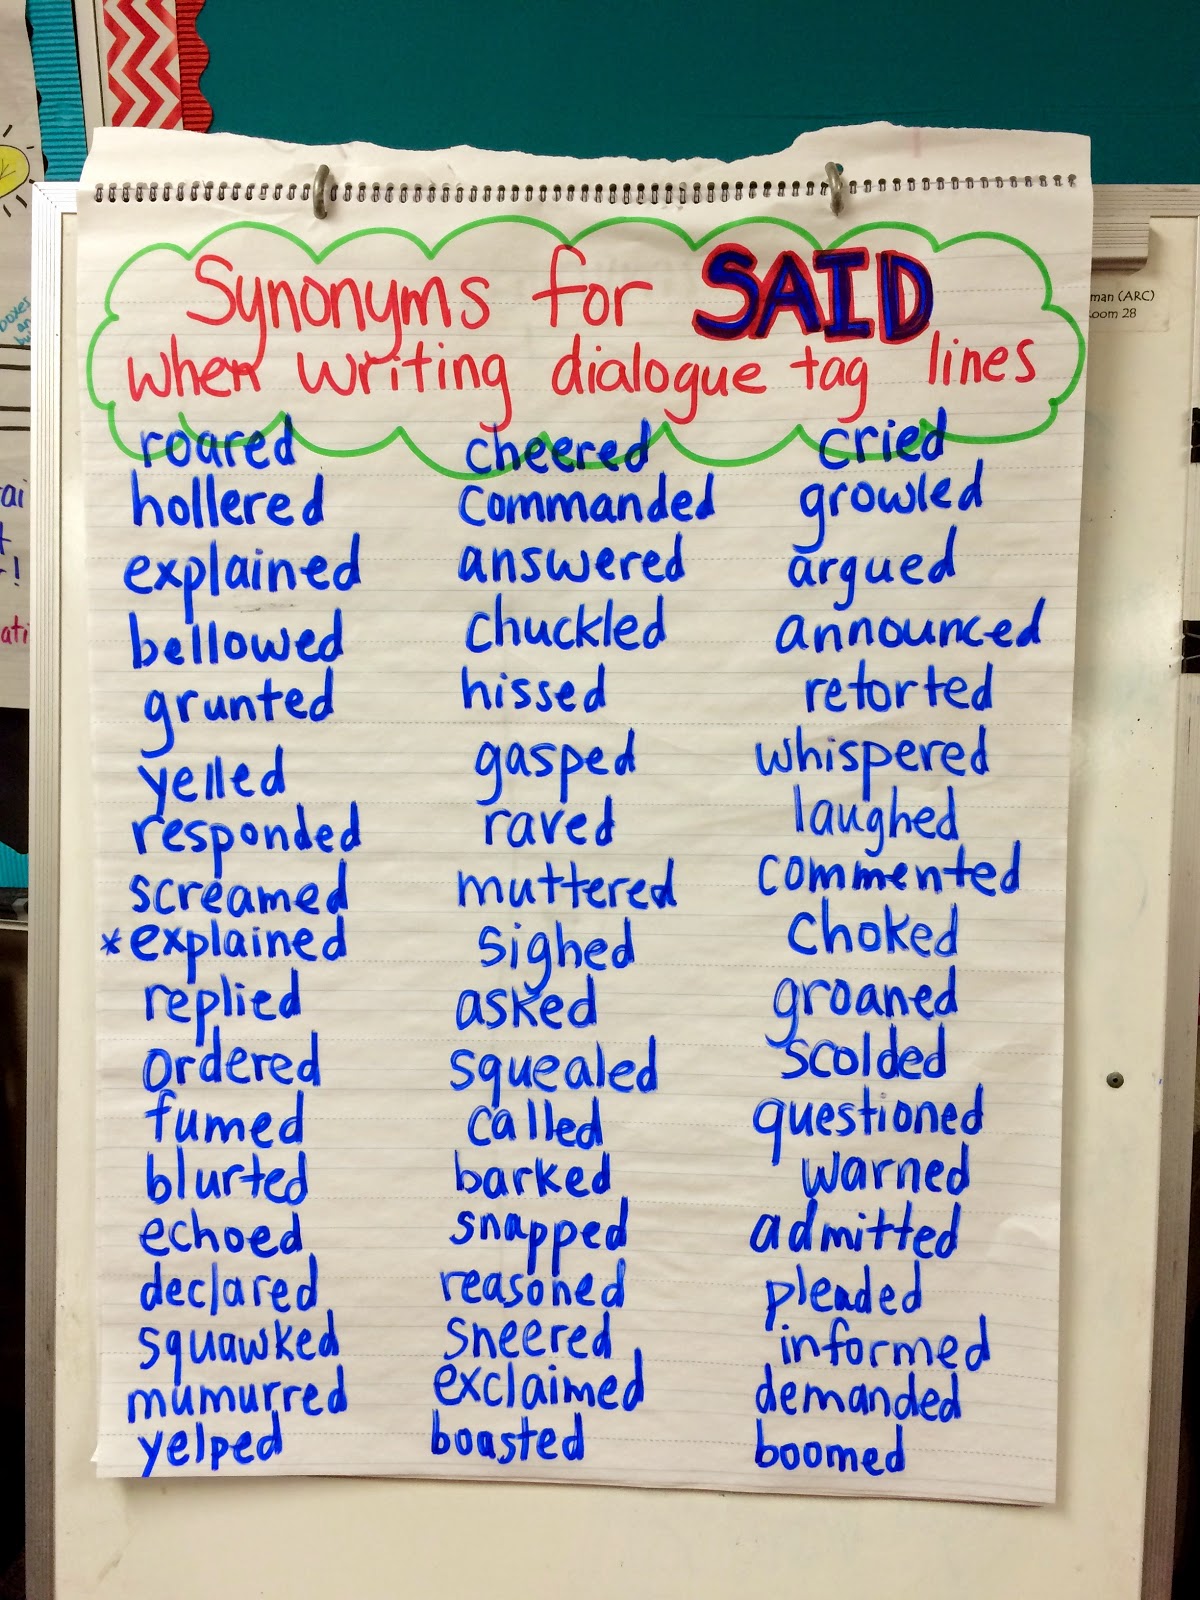 Synonyms for SAID
when writing dialogue tag lines
roared cheered cried
hollered commanded growled
explained answered argued
bellowed chuckled announced
grunted hissed retorted
yelled gasped whispered
responded raved laughed
screamed muttered commented
*explained sighed choked
replied asked groaned
ordered squealed scolded
fumed called questioned
blurted barked warned
echoed snapped admitted
declared reasoned pleaded
squawked sneered informed
mumurred exclaimed demanded
yelped boasted boomed
man (ARC)
oom 28
boxes
an
ai
!
ati